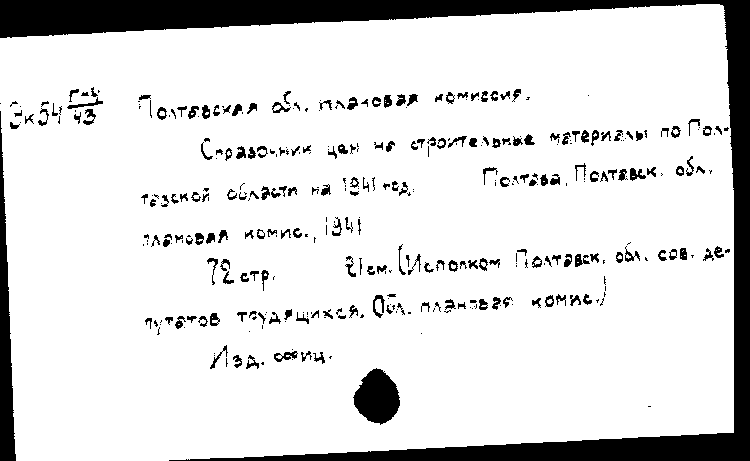 Эк54 43 Полтавская обл. плановая комиссия.
Справочник цен на строительные материалы по Пол-
тавской области на 1941 год. Полтава, Полтавск. обл.
плановая комис., 1941
72 стр. 21 см. (Исполком Полтавск. обл. сов. де-
путатов трудящихся. Обл. плановая комис.)
Изд. офиц.